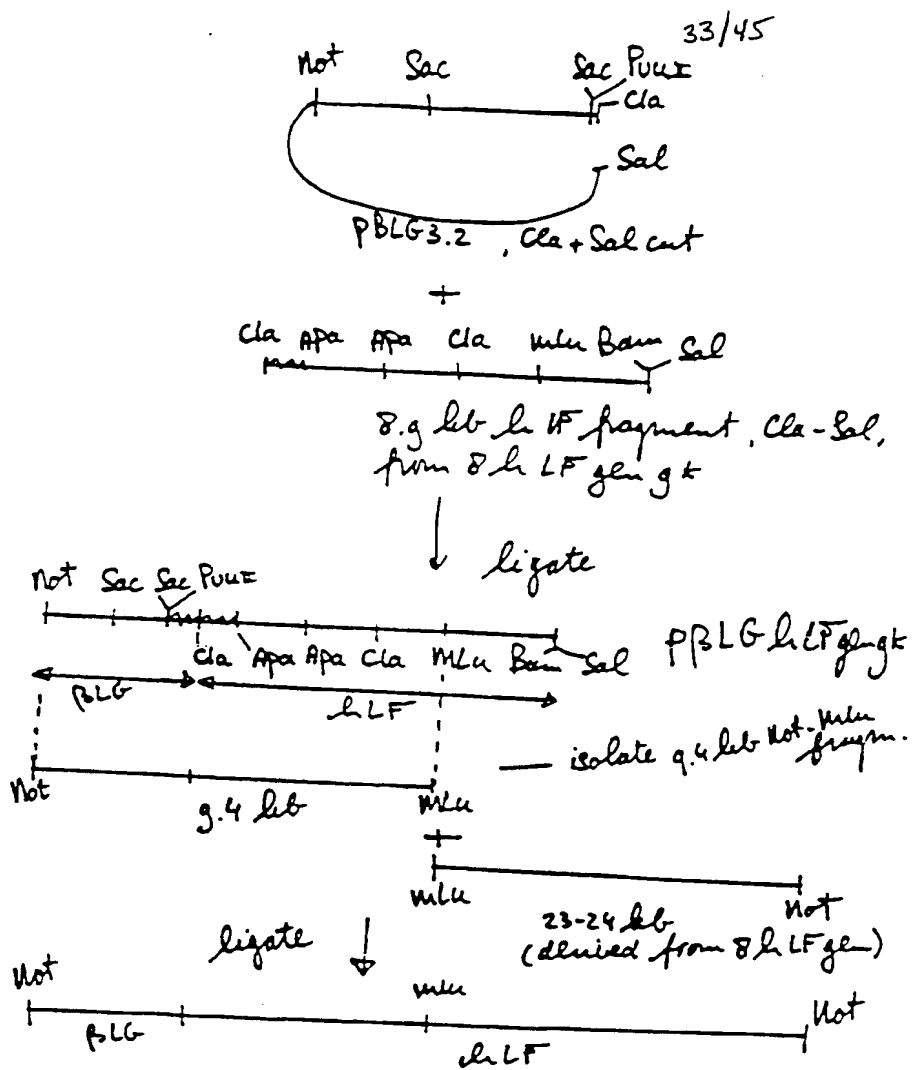 33/45
Not Sac Sac PvuII
Cla
Sal
pBLG3.2, Cla + Sal cut
+
Cla Apa Apa Cla Mlu Bam Sal
8.9 kb hLF fragment, Cla-Sal,
from 8hLFgen 9k
ligate
Not Sac Sac PvuII
Cla Apa Apa Cla Mlu Bam Sal pβLGhLFgen9k
βLG hLF
isolate 9.4 kb Not-Mlu
fragm.
Not 9.4 kb Mlu
+
Mlu Not
23-24 kb
(derived from 8hLFgen)
ligate
Not Mlu Not
βLG hLF